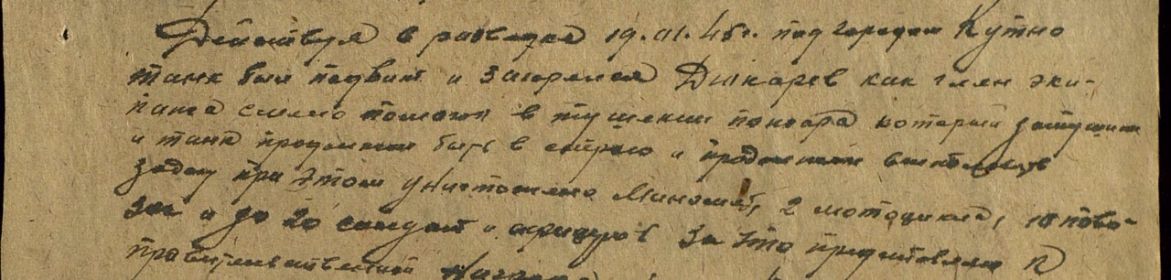 Действуя в разведке 19.01.45г. под городом Кутно
танк был подбит и загорелся Дынкарев как член эки-
пажа смело помогал в тушении пожара который затушили
и танк продолжал быть в строю и продолжали выполнять
задачу при этом уничтожено миномет, 2 мотоцикла, 10 пово-
зок и до 20 солдат и офицеров За это представляем к
правительственной награде